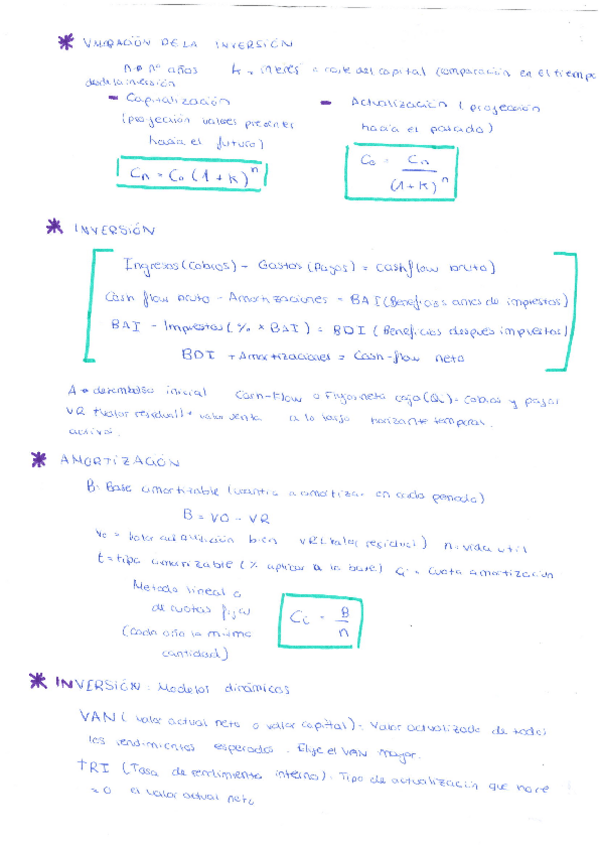 * VALORACIÓN DE LA INVERSIÓN
n = nº años k = interés o coste del capital (comparación en el tiempo
desde la inversión
- Capitalización
(proyección valores presentes
hacia el futuro)
Cn = C0 (1 + k)^n
- Actualización (proyección
hacia el pasado)
C0 = Cn / (1 + k)^n
* INVERSIÓN
Ingresos (Cobros) - Gastos (Pagos) = Cashflow bruto)
Cash flow bruto - Amortizaciones = BAI (Beneficios antes de impuestos)
BAI - Impuestos (% x BAI) = BDI (Beneficios despues impuestos)
BDI + Amortizaciones = Cash-flow neto
A desembolso inicial Cash-Flow o Flujo neto caja (Qi) = cobros y pagos
VR (valor residual) valor venta a lo largo horizonte temporal.
activo.
* AMORTIZACIÓN
B: Base amortizable (cuantia a amortizar en cada periodo)
B = VO - VR
Vo = Valor adquisición bien VR (valor residual) n = vida util
t = tipo amortizable (% aplicar a la base) Ci = Cuota amortización
Metodo lineal o
de cuotas fijas
(cada año la misma
cantidad)
Ci = B / n
* INVERSIÓN: Modelos dinámicos
VAN (valor actual neto o valor capital): Valor actualizado de todos
los rendimientos esperados. Elije el VAN mayor.
TRI (Tasa de rendimiento interno): Tipo de actualización que hace
= 0 el valor actual neto